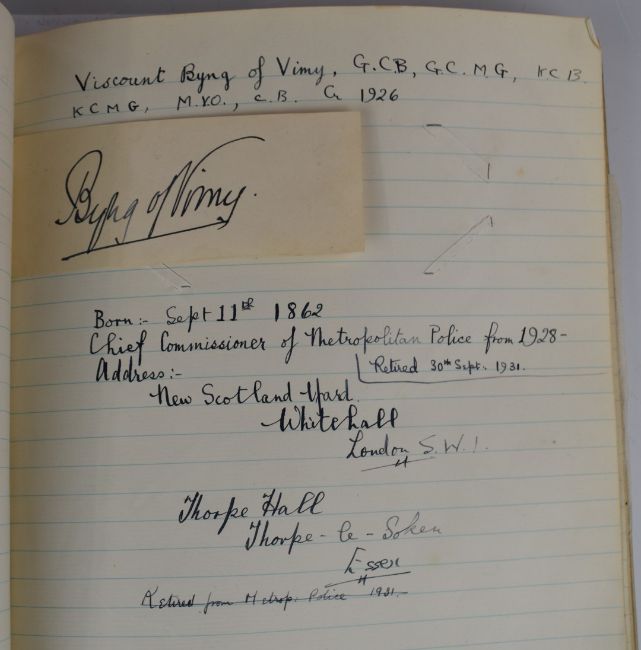 Viscount Byng of Vimy, G.C.B, G.C.M.G, K.C.B.
K C M G, M.V.O., C.B. Cr 1926
Byng of Vimy.
Born:- Sept 11th 1862
Chief Commissioner of Metropolitan Police from 1928-
Retired 30th Sept. 1931.
Address:-
New Scotland Yard.
Whitehall
London S.W.1.
Thorpe Hall
Thorpe-le-Soken
Essex
Retired from Metrop: Police 1931.-